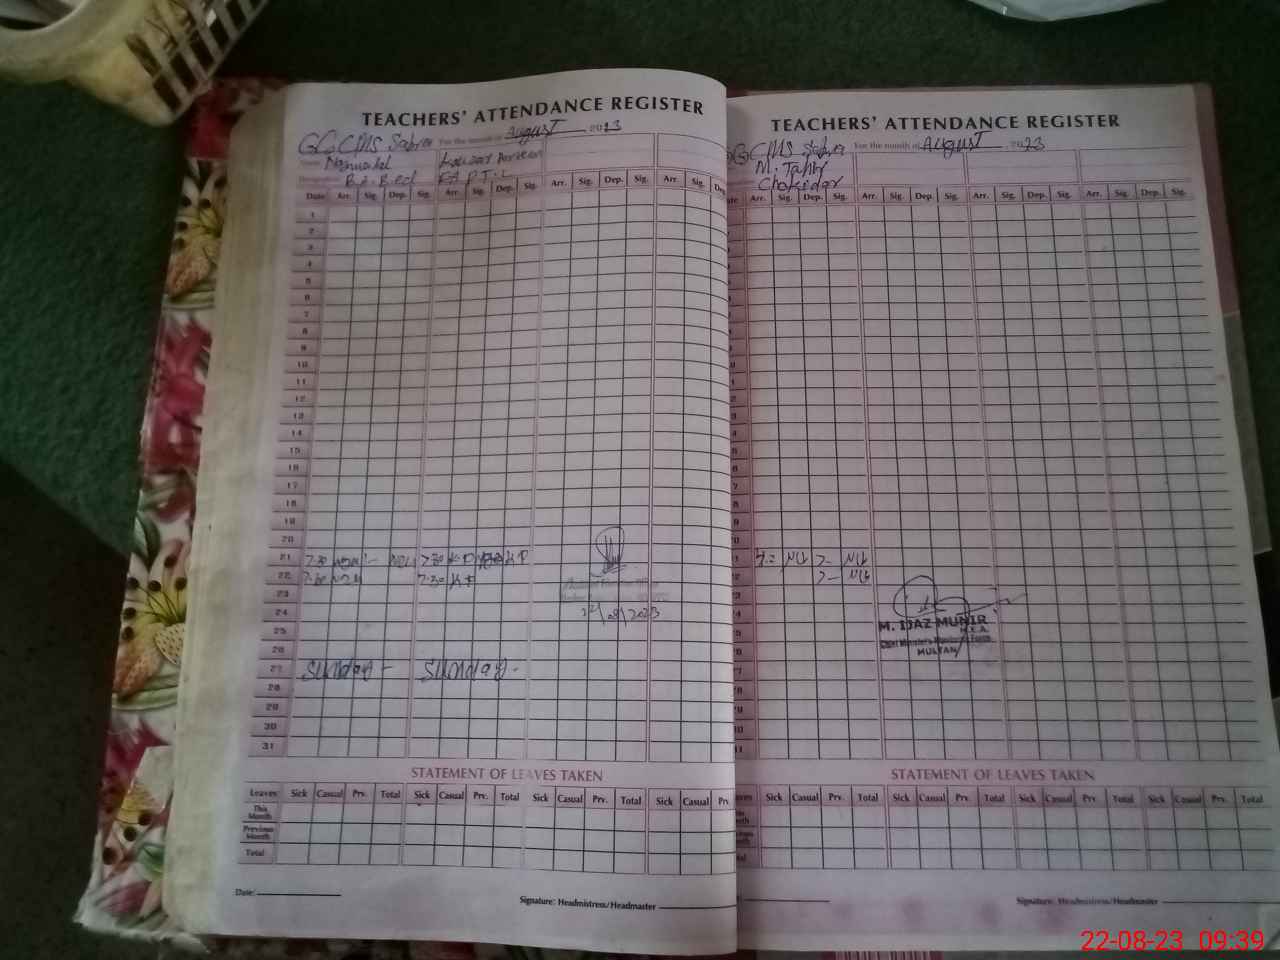 TEACHERS' ATTENDANCE REGISTER
GGCMS Sabra For the month of August 2023
Name
B.A. B.ed P.T.C
Date Arr. Sig. Dep. Sig. Arr. Sig. Dep. Sig. Arr. Sig. Dep. Sig. Arr. Sig.
1
2
3
4
5
6
7
8
9
10
11
12
13
14
15
16
17
18
19
20
21 7:30 7:30 K.P K.P
22 7:30 7:30 K.P
23
24 22/08/2023
25
26
27 Sunday - Sunday -
28
29
30
31
STATEMENT OF LEAVES TAKEN
Leaves Sick Casual Prv. Total Sick Casual Prv. Total Sick Casual Prv. Total Sick Casual
This Month
Previous Month
Total
Date:
Signature: Headmistress/Headmaster
TEACHERS' ATTENDANCE REGISTER
GGCMS Sabra For the month of August 2023
M. Tahir
Chokidar
Arr. Sig. Dep. Sig. Arr. Sig. Dep. Sig. Arr. Sig. Dep. Sig. Arr. Sig. Dep. Sig.
M. IJAZ MUNIR
MULTAN
STATEMENT OF LEAVES TAKEN
Sick Casual Prv. Total Sick Casual Prv. Total Sick Casual Prv. Total Sick Casual Prv. Total
Signature: Headmistress/Headmaster
22-08-23 09:39